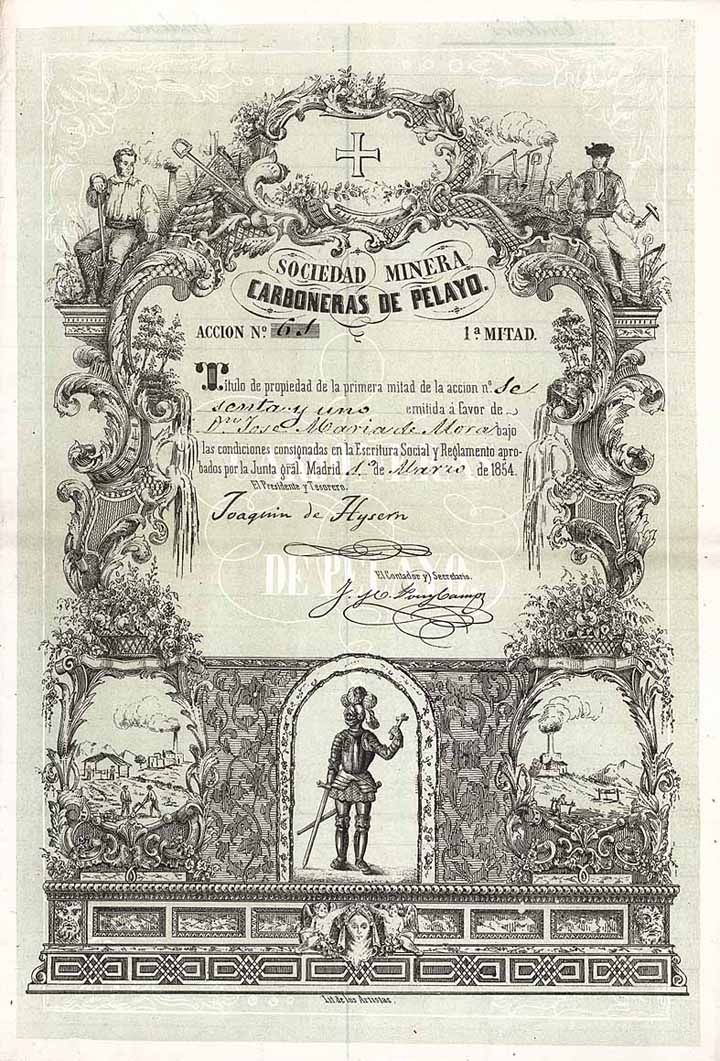 SOCIEDAD MINERA
CARBONERAS DE PELAYO.
ACCION N.º 61 1ª MITAD.
Título de propiedad de la primera mitad de la accion n.º se
senta y uno emitida á favor de
Dn. Jose Maria de Mora bajo
las condiciones consignadas en la Escritura Social y Reglamento apro-
bados por la Junta gral. Madrid 1.º de Marzo de 1854.
El Presidente y Tesorero.
Joaquin de Hysern
DE PELAYO
El Contador y Secretario.
Lit. de los Artistas.